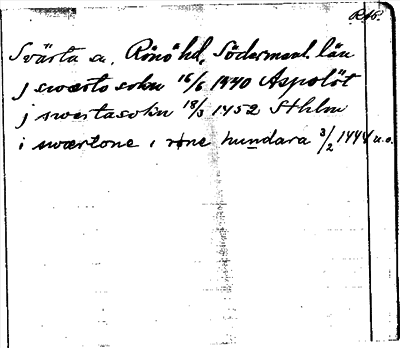 R.16.
Svärta sn, Rönö hd, Södermanl. län
j swærto sokn 16/6 1440 Aspolöt
j swertasokn 18/3 1452 Sthlm
i swærtone i røne hundara 3/2 1444 u.o.